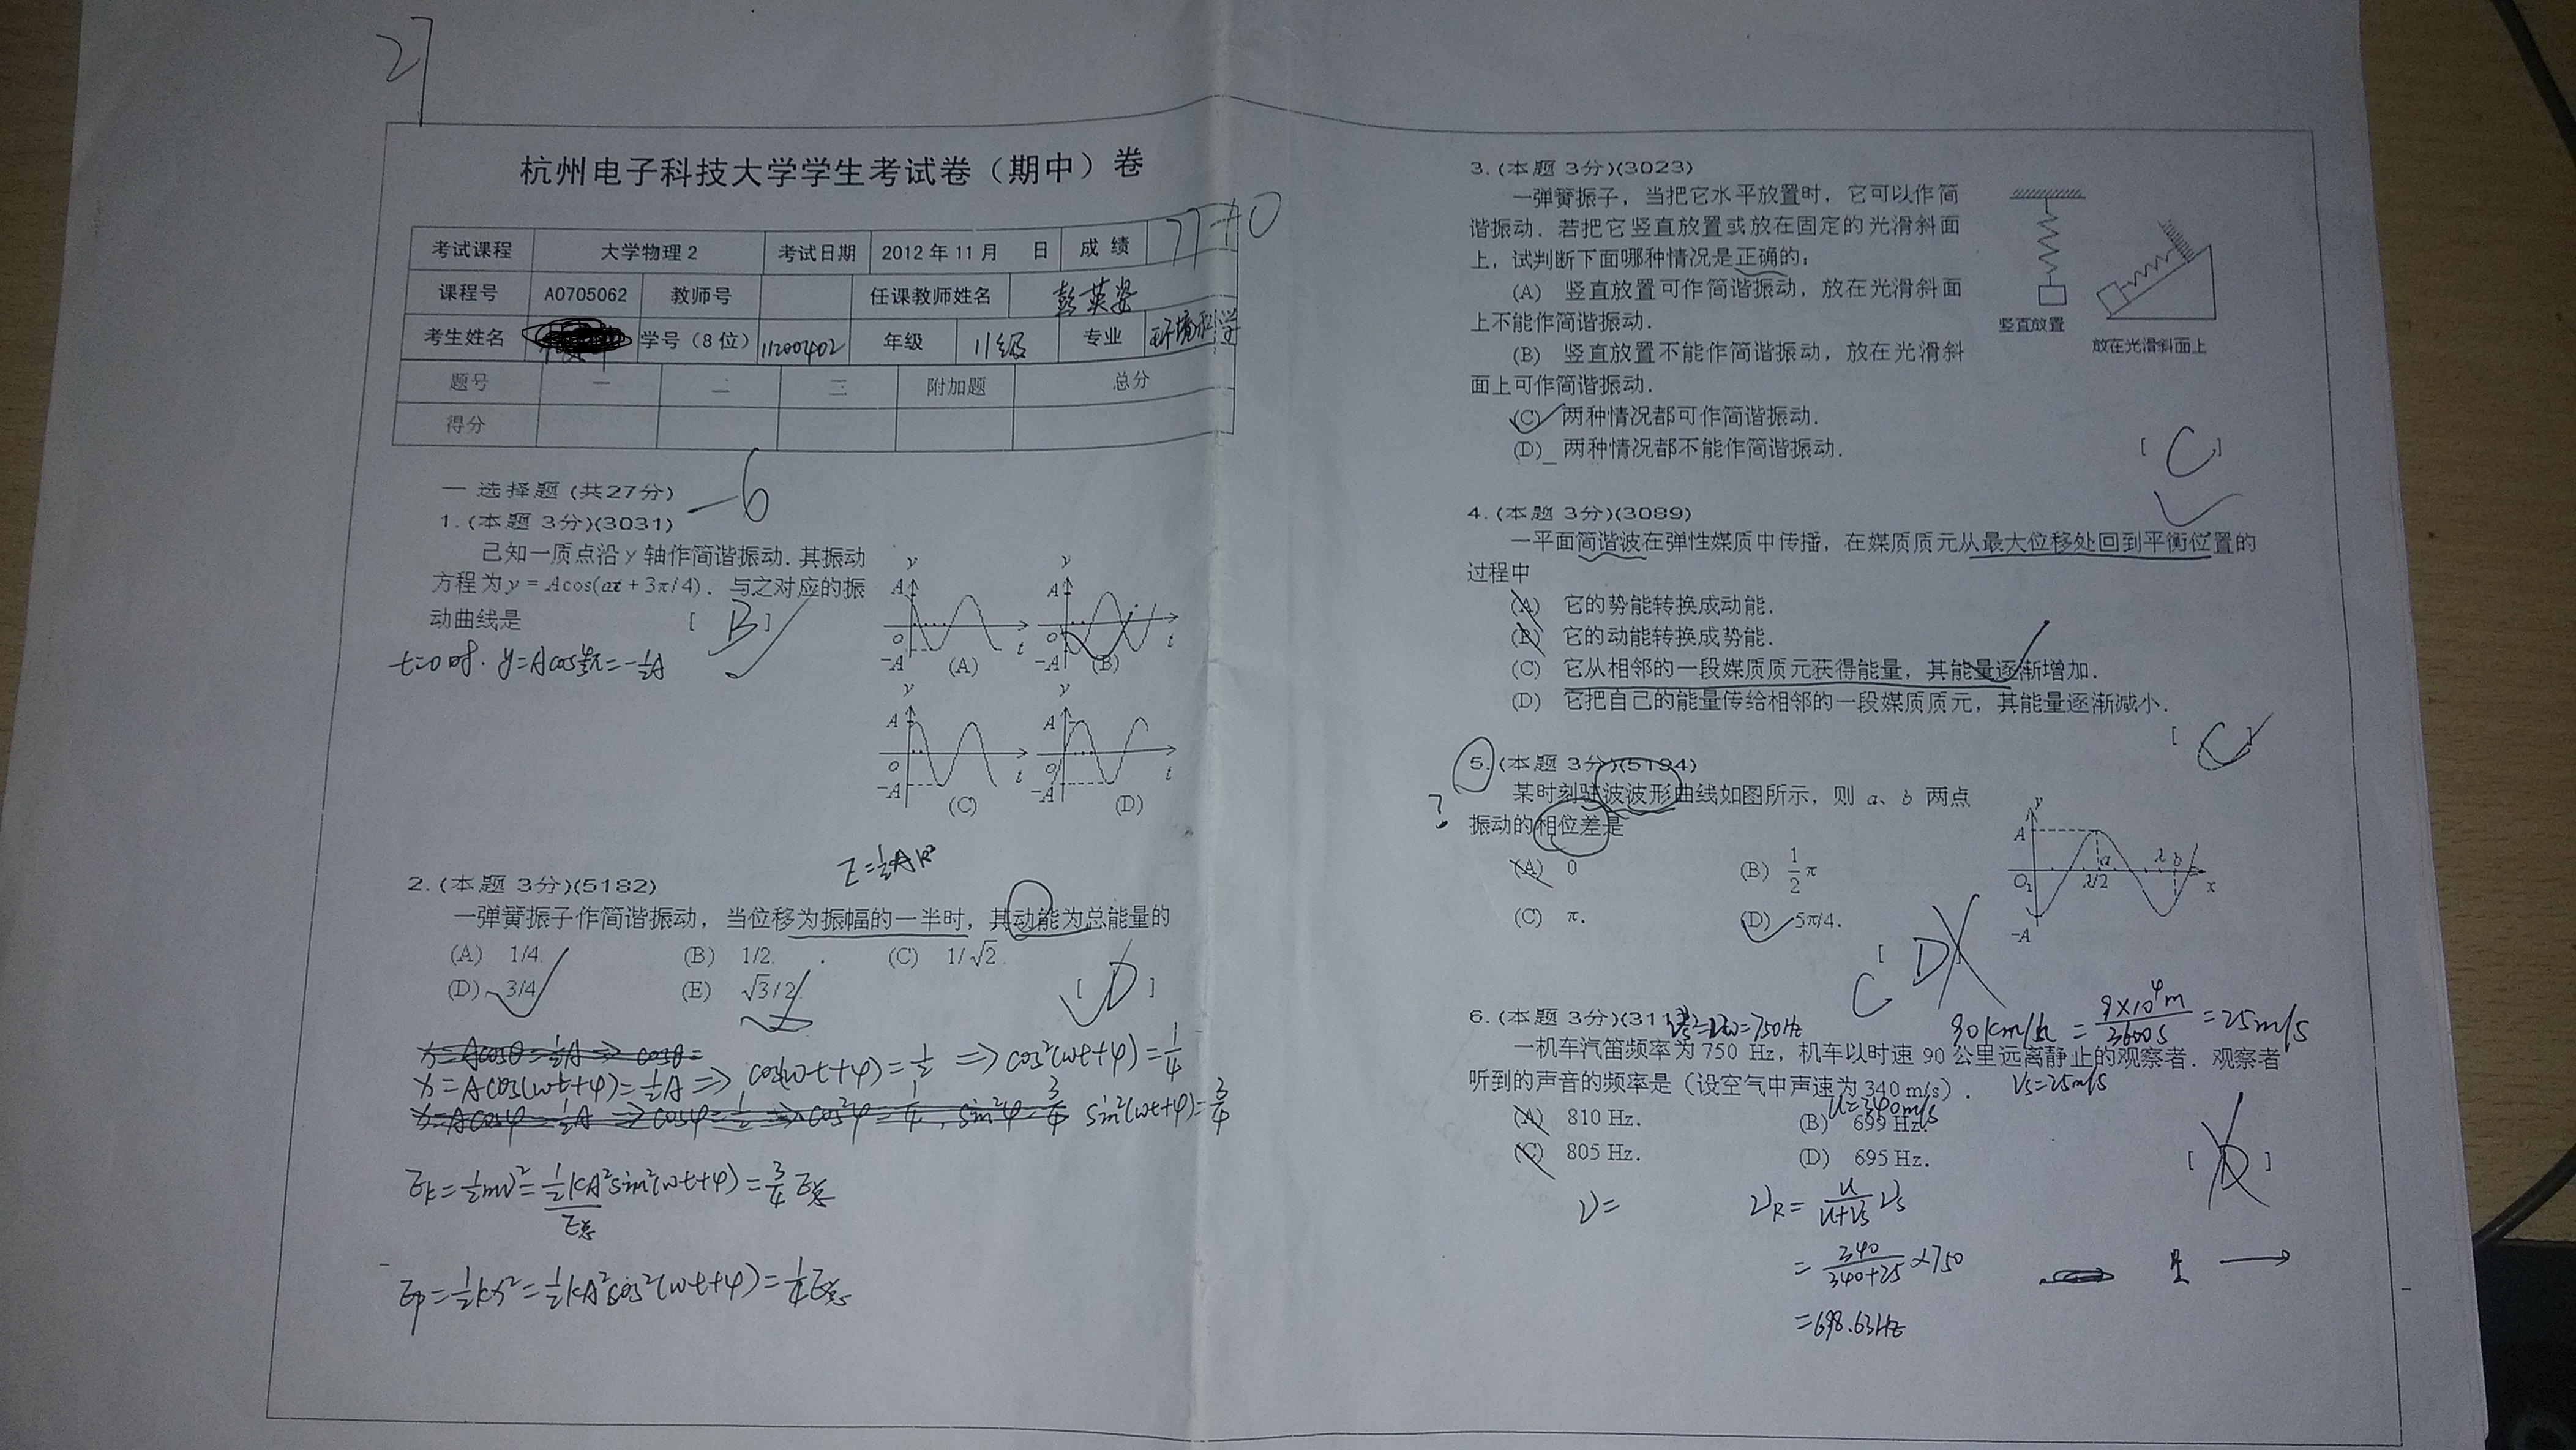 27
杭州电子科技大学学生考试卷（期中）卷
考试课程 大学物理2 考试日期 2012年11月 日 成绩 77+10
课程号 A0705062 教师号 任课教师姓名 彭英姿
考生姓名 学号（8位） 11200402 年级 11级 专业 环境科学
题号 一 二 三 附加题 总分
得分
一 选择题 (共27分) -6
1. (本题 3分)(3031)
已知一质点沿 y 轴作简谐振动. 其振动
方程为 y = Acos(ωt + 3π/4). 与之对应的振
动曲线是 [ B ]
y A O -A t (A)
y A O -A t (B)
y A O -A t (C)
y A O -A t (D)
2. (本题 3分)(5182)
一弹簧振子作简谐振动，当位移为振幅的一半时，其动能为总能量的
(A) 1/4. (B) 1/2. (C) 1/√2.
(D) 3/4. (E) √3/2. [ D ]
x=Acos(ωt+φ)=½A ⇒ cos(ωt+φ)=½ ⇒ cos²(ωt+φ)=1/4
sin²(ωt+φ)=3/4
Ek=½mv²=½kA²sin²(ωt+φ)=3/4 E总
E总
Ep=½kx²=½kA²cos²(ωt+φ)=1/4 E总
3. (本题 3分)(3023)
一弹簧振子，当把它水平放置时，它可以作简
谐振动．若把它竖直放置或放在固定的光滑斜面
上，试判断下面哪种情况是正确的：
(A) 竖直放置可作简谐振动，放在光滑斜面
上不能作简谐振动．
(B) 竖直放置不能作简谐振动，放在光滑斜
面上可作简谐振动．
(C) 两种情况都可作简谐振动．
(D) 两种情况都不能作简谐振动．
[ C ]
竖直放置
放在光滑斜面上
4. (本题 3分)(3089)
一平面简谐波在弹性媒质中传播，在媒质质元从最大位移处回到平衡位置的
过程中
(A) 它的势能转换成动能．
(B) 它的动能转换成势能．
(C) 它从相邻的一段媒质质元获得能量，其能量逐渐增加．
(D) 它把自己的能量传给相邻的一段媒质质元，其能量逐渐减小．
[ C ]
5. (本题 3分)(5194)
某时刻驻波波形曲线如图所示，则 a、b 两点
? 振动的相位差是
(A) 0 (B) ½π
(C) π. (D) 5π/4.
[ D ]
C
y A a λ b O λ/2 x -A
6. (本题 3分)
90km/h = 9×10⁴m/3600s = 25m/s
一机车汽笛频率为 750 Hz，机车以时速 90 公里远离静止的观察者．观察者
听到的声音的频率是（设空气中声速为 340 m/s）． Vs=25m/s
u=340m/s
(A) 810 Hz. (B) 699 Hz.
(C) 805 Hz. (D) 695 Hz.
ν= νR= u/(u+Vs) νs
= 340/(340+25) ×750
=698.63Hz